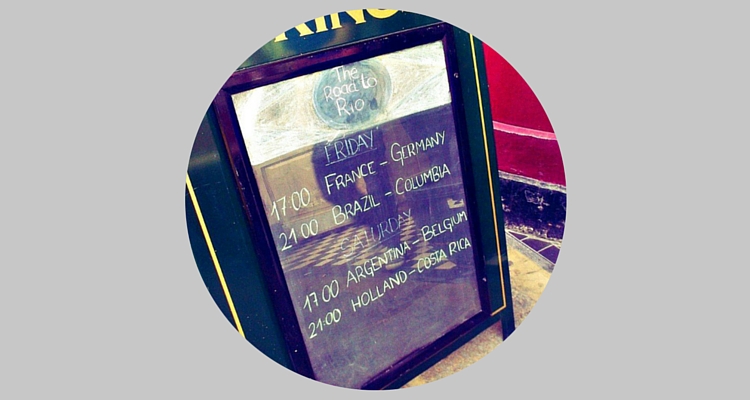 The
Road to
Rio
FRIDAY
17:00 FRANCE - GERMANY
21:00 BRAZIL - COLUMBIA
SATURDAY
17:00 ARGENTINA - BELGIUM
21:00 HOLLAND - COSTA RICA